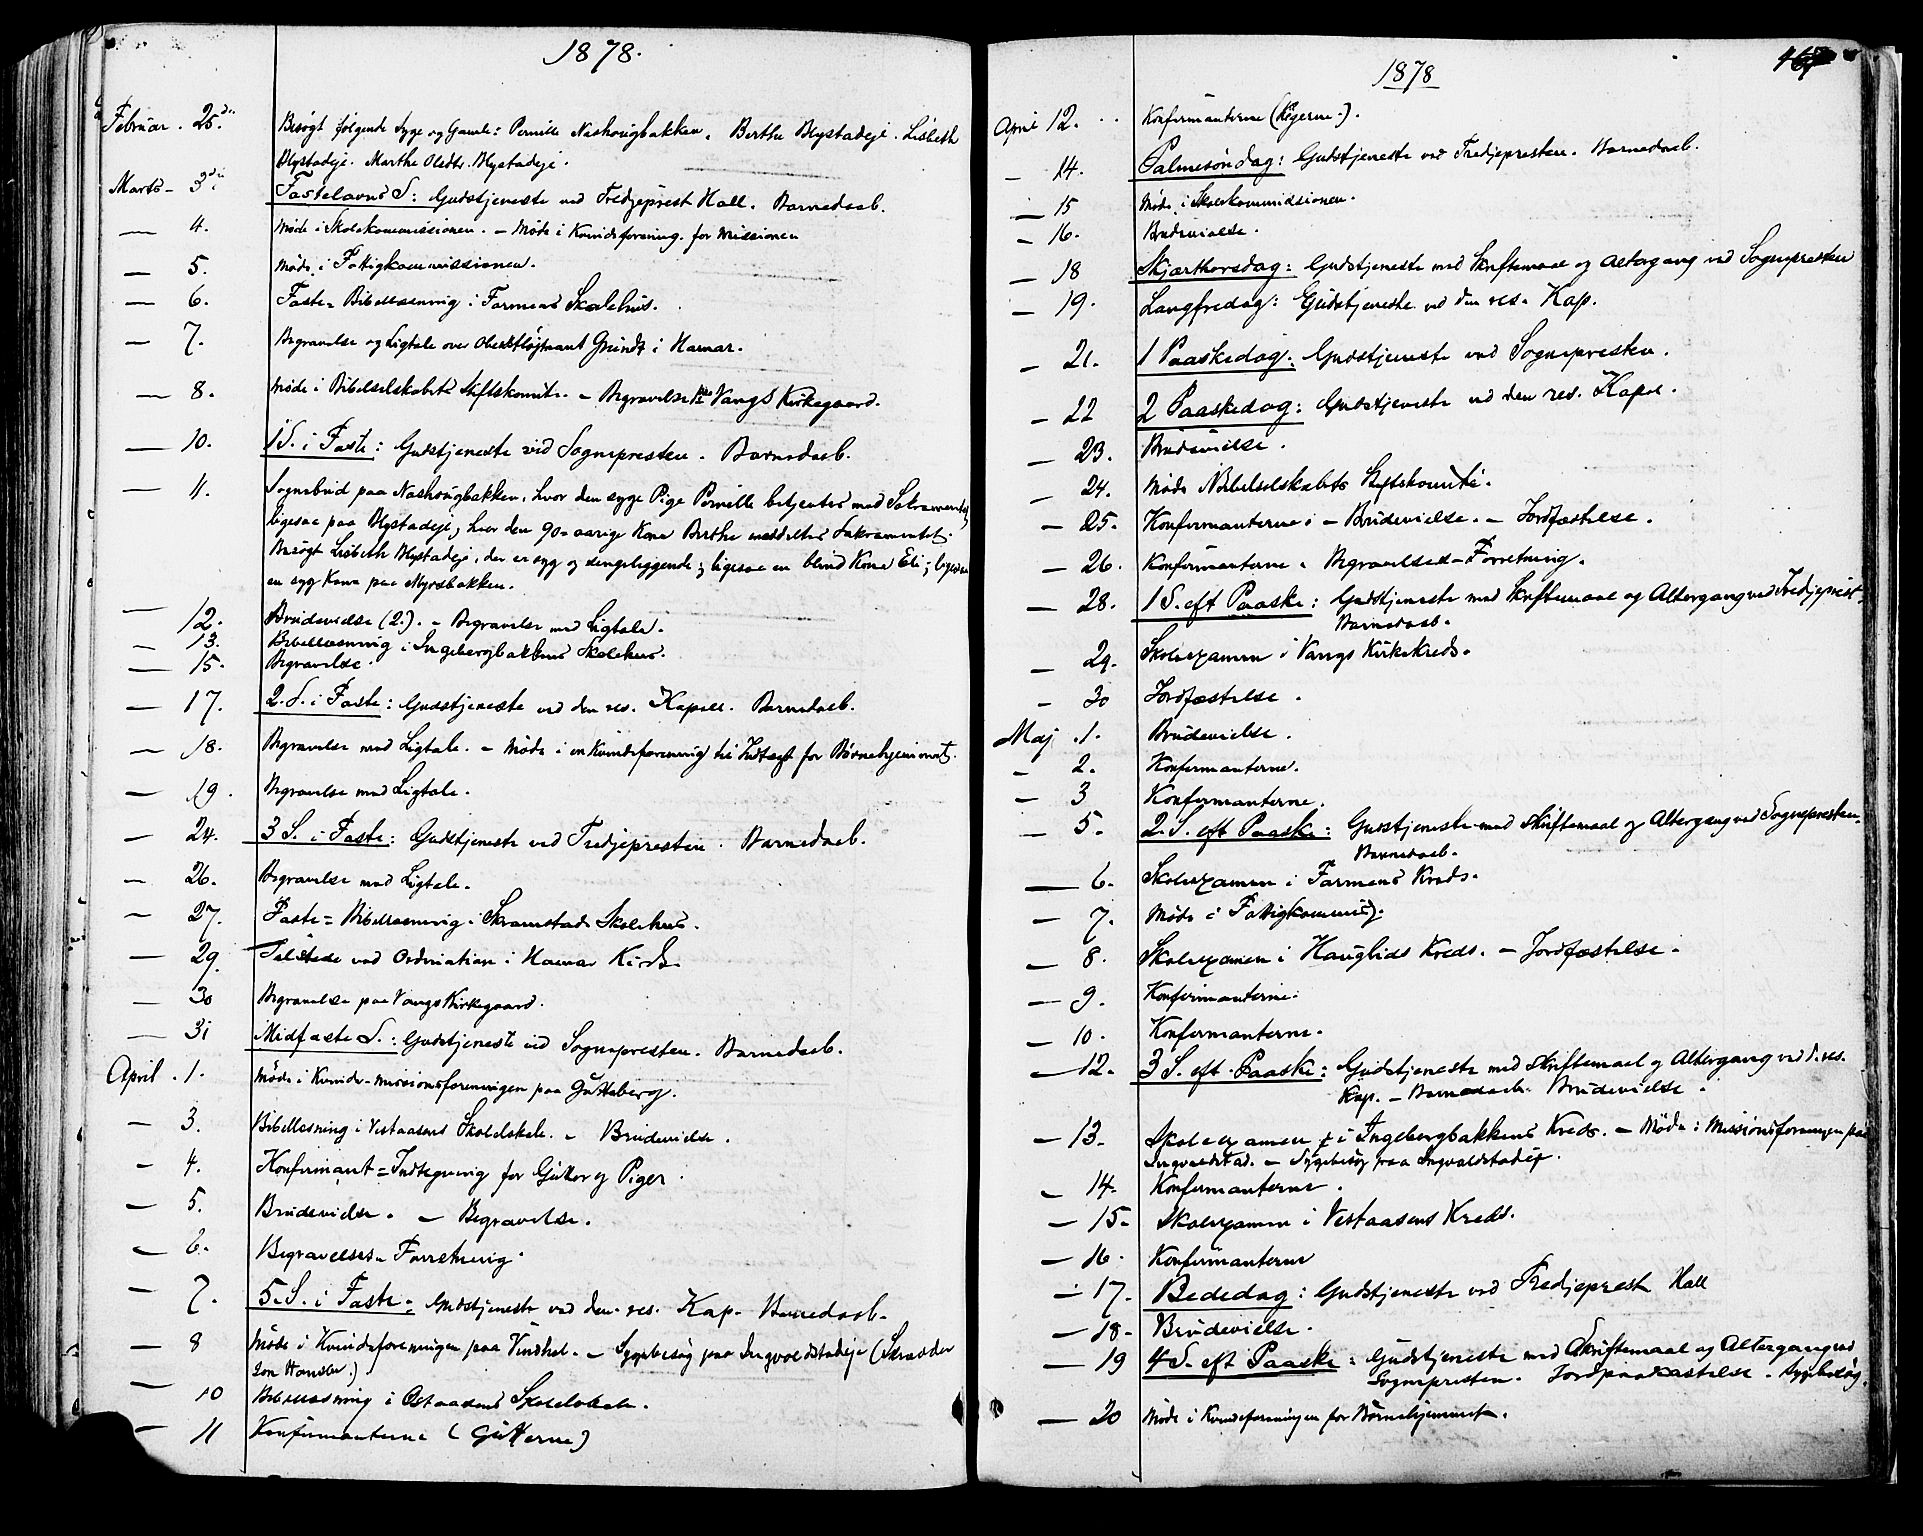 1878.
Februar. 25de Besøgt følgende Syge og Gamle: Pernille Nashougbakken. Berthe Blystadeje. Lisbeth
Blystadeje. Marthe Olsdtr. Blystadeje.
Marts - 3die Fastelavns S: Gudstjeneste ved Tredjeprest Hall. Barnedaab.
— 4. Møde i Skolekommissionen. – Møde i Kvindeforening for Missionen
— 5. Møde i Fattigkommissionen.
— 6. Faste=Bibellæsning i Farmens Skolehus.
— 7. Begravelse og Ligtale over Oberstløjtnant Grundt i Hamar.
— 8. Møde i Bibelselskabets Stiftskomite. – Begravelse Vangs Kirkegaard.
— 10. 1 S. i Faste: Gudstjeneste ved Sognepresten. Barnedaab.
— 11. Sognebud paa Nashougbakken, hvor den syge Pige Pernille betjentes med Sakramentet,
ligesaa paa Blystadeje, hvor den 90-aarige Kone Berthe meddeltes Sakramentet.
Besøgt Lisbeth Blystadeje, der er syg og sengeliggende; ligesaa en blind Kone Eli; ligesaa
en syg Kone paa Myrsbakken.
— 12. Brudevielse (2.). – Begravelse med Ligtale.
— 13. Bibellæsning i Ingebergbakkens Skolehus.
— 15. Begravelse.
— 17. 2. S. i Faste: Gudstjeneste ved den res. Kapell. Barnedaab.
— 18. Begravelse med Ligtale. – Møde i en Kvindeforening til Indtægt for Børnehjemmet.
— 19. Begravelse med Ligtale.
— 24. 3 S. i Faste: Gudstjeneste ved Tredjepresten. Barnedaab.
— 26. Begravelse med Ligtale.
— 27. Faste=Bibellæsning i Skramstads Skolehus.
— 29. Tilstede ved Ordination i Hamar Kirke
— 30 Begravelse paa Vangs Kirkegaard.
— 31 Midfaste S.: Gudstjeneste ved Sognepresten. Barnedaab.
April. 1. Møde i Kvinde-missionsforeningen paa Gaustaberg.
— 3. Bibellæsning i Vestaasens Skolelokale. – Brudevielse.
— 4. Konfirmant=Indtegning for Gutter og Piger.
— 5. Brudevielse. – Begravelse.
— 6. Begravelses-Forretning.
— 7. 5. S. i Faste: Gudstjeneste ved den res. Kap. Barnedaab.
— 8 Møde i Kvindeforeningen paa Vindhol. – Sygebesøg paa Ingvoldstadeje (Skrædder
Jon Hansen.)
— 10 Bibellæsning i Østaasens Skolelokale.
— 11 Konfirmanterne (Gutterne)
1878
April 12. Konfirmanterne (Pigerne.).
— 14. Palmesøndag: Gudstjeneste ved Tredjepresten. Barnedaab.
— 15 Møde i Skolekommissionen.
— 16. Brudevielse.
— 18 Skjærthorsdag: Gudstjeneste med Skriftemaal og Altergang ved Sognepresten
— 19. Langfredag: Gudstjeneste ved den res. Kap.
— 21. 1 Paaskedag: Gudstjeneste ved Sognepresten.
— 22 2 Paaskedag: Gudstjeneste ved den res. Kapel.
— 23. Brudevielse.
— 24. Møde i Bibelselskabets Stiftskomite.
— 25. Konfirmanterne. – Brudevielse. – Jordfæstelse.
— 26. Konfirmanterne. Begravelses-Forretning.
— 28. 1 S. eft Paaske: Gudstjeneste med Skriftemaal og Altergang ved Tredjeprest.
Barnedaab.
— 29. Skoleexamen i Vangs Kirkekreds.
— 30 Jordfæstelse.
Maj. 1. Brudevielse.
— 2. Konfirmanterne.
— 3 Konfirmanterne.
— 5. 2. S. eft Paaske: Gudstjeneste med Skriftemaal og Altergang ved Sognepresten.
Barnedaab.
— 6. Skoleexamen i Farmens Kreds.
— 7. Møde i Fattigkommis).
— 8. Skoleexamen i Hauglids Kreds. – Jordfæstelse.
— 9. Konfirmanterne.
— 10. Konfirmanterne.
— 12. 3 S. eft. Paaske: Gudstjeneste med Skriftemaal og Altergang ved d. res.
Kap. – Barnedaab. Brudevielse.
— 13. Skoleexamen i Ingebergbakkens Kreds. – Møde i Missionsforeningen paa
Ingvoldstad. – Sygebesøg paa Ingvoldstadeje.
— 14. Konfirmanterne.
— 15. Skoleexamen i Vestaasens Kreds.
— 16. Konfirmanterne
— 17. Bededag: Gudstjeneste ved Tredjeprest Hall
— 18. Brudevielse.
— 19 4 S. eft Paaske: Gudstjeneste med Skriftemaal og Altergang ved
Sognepresten. Jordpaakastelse. Sygebesøg.
— 20 Møde i Kvindeforeningen for Børnehjemmet.